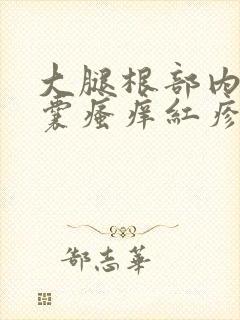 大腿根部内
囊瘙痒红疹
郜志华